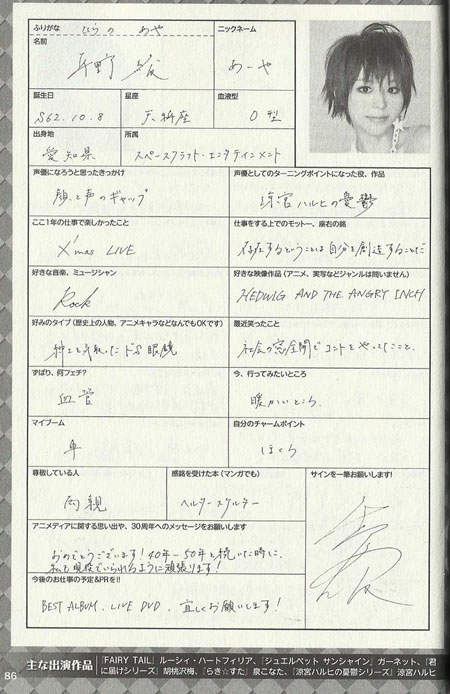 ふりがな ひらの あや
ニックネーム
名前 平野 綾
あーや
誕生日
星座
血液型
S62.10.8
天秤座
O型
出身地
所属
愛知県
スペースクラフト・エンタテインメント
声優になろうと思ったきっかけ
声優としてのターニングポイントになった役、作品
顔と声のギャップ
涼宮ハルヒの憂鬱
ここ1年の仕事で楽しかったこと
仕事をする上でのモットー、座右の銘
X'mas LIVE
存在するということは自分を創造することだ
好きな音楽、ミュージシャン
好きな映像作品（アニメ、実写などジャンルは問いません）
Rock
HEDWIG AND THE ANGRY INCH
好みのタイプ（歴史上の人物、アニメキャラなどなんでもOKです）
最近笑ったこと
紳士を気取ったドS眼鏡
社会の窓全開でコントをやってたこと。
ずばり、何フェチ?
今、行ってみたいところ
血管
暖かいところ
マイブーム
自分のチャームポイント
車
ほくろ
尊敬している人
感銘を受けた本（マンガでも）
サインを一筆お願いします!
両親
ヘルタースケルター
アニメディアに関する思い出や、30周年へのメッセージをお願いします
おめでとうございます!40年－50年と続いた時に、
私も現役でいられるように頑張ります!
今後のお仕事の予定&PRを!!
BEST ALBUM、LIVE DVD、宜しくお願いします!
主な出演作品
『FAIRY TAIL』ルーシィ・ハートフィリア、『ジュエルペット サンシャイン』ガーネット、『君
に届けシリーズ』胡桃沢梅、『らき☆すた』泉こなた、『涼宮ハルヒの憂鬱シリーズ』涼宮ハルヒ
86